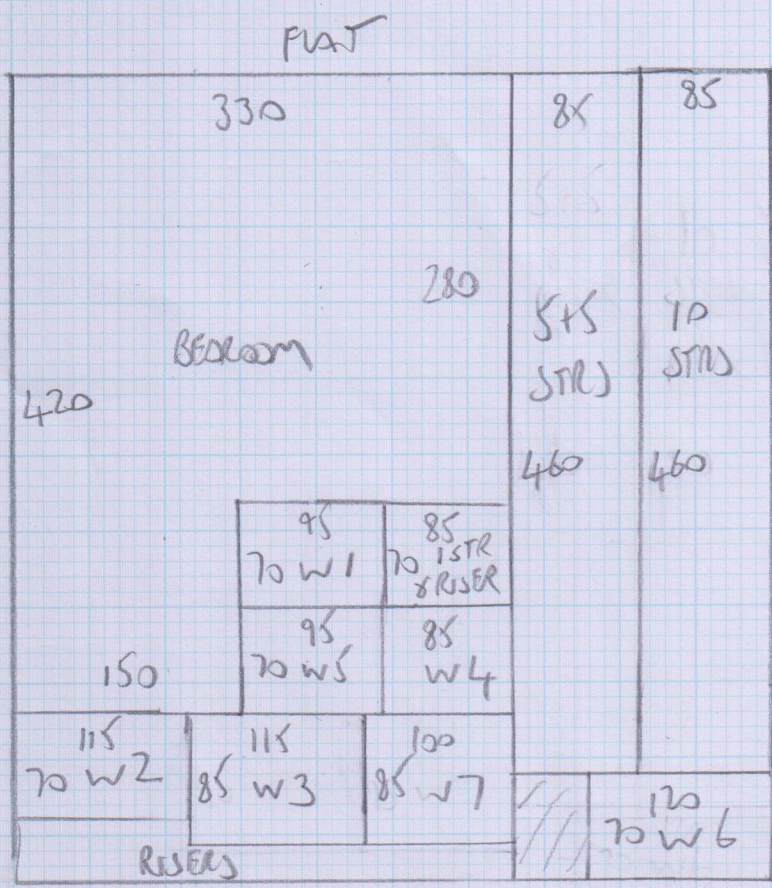 FLAT
330
85
85
280
5+5
STRS
10
STRS
BEDROOM
420
460
460
95
70 W1
85
70 1 STR
& RISER
95
70 W5
85
W4
150
115
70 W2
115
85 W3
100
85 W7
120
70 W6
RISERS